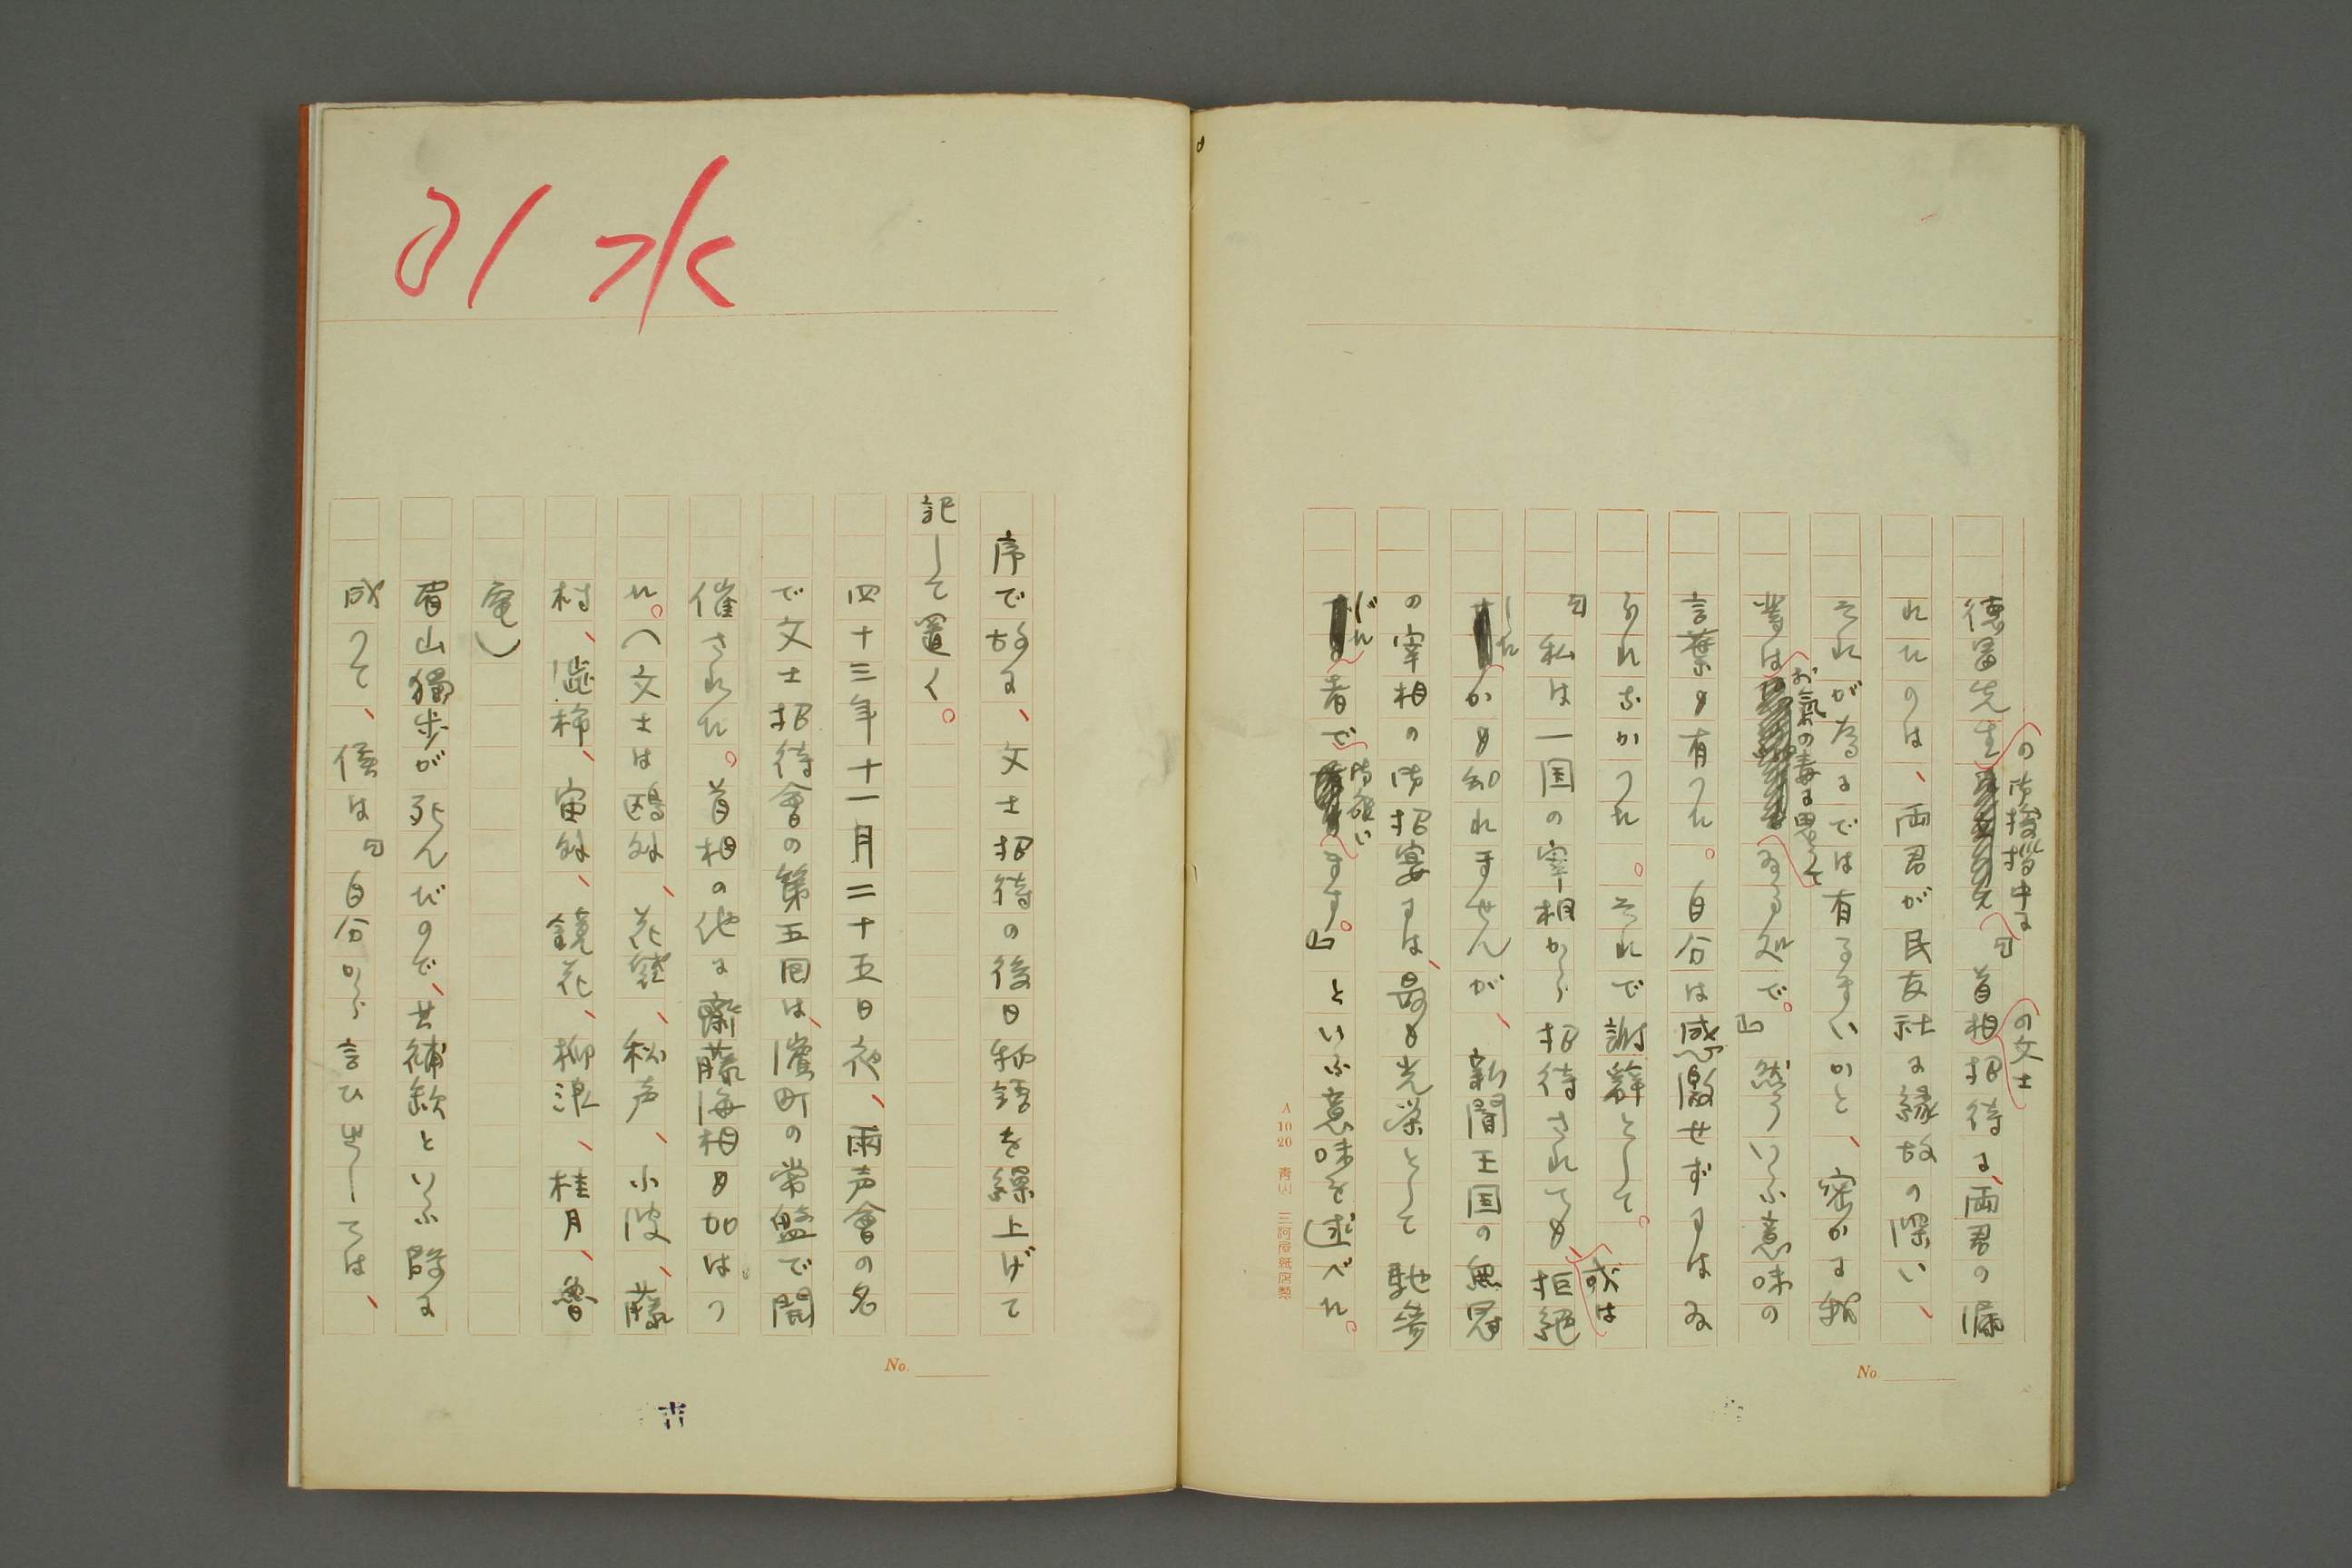 徳富先生の御挨拶中に『首相の文士招待に、両君の漏
れたのは、両君が民友社に縁故の深い、
それが為にでは有るまいかと、密かに我
輩はお気の毒に思つてゐる処で。』然ういふ意味の
言葉も有つた。自分は感激せずにはゐ
られなかつた。それで謝辞として。
『私は一国の宰相から招待されても、或は拒絶
したかも知れませんが、新聞王国の無冠
の宰相の御招宴には、最も光栄として馳参
じた者で御座います。』といふ意味を述べた。
A 10 20 三河屋紙店製
No.
水
序で故に、文士招待の後日物語を繰上げて
記して置く。
四十三年十一月二十五日夜、雨声會の名
で文士招待會の第五回は、濱町の常盤で開
催された。首相の他に齋藤海相も加はつ
た。(文士は鴎外、花袋、秋声、小波、藤
村、澁柿、宙外、鏡花、柳浪、桂月、魯
庵)
眉山獨歩が死んだので、其補缺といふ段に
成つて、僕は『自分から言ひ出しては、
No.